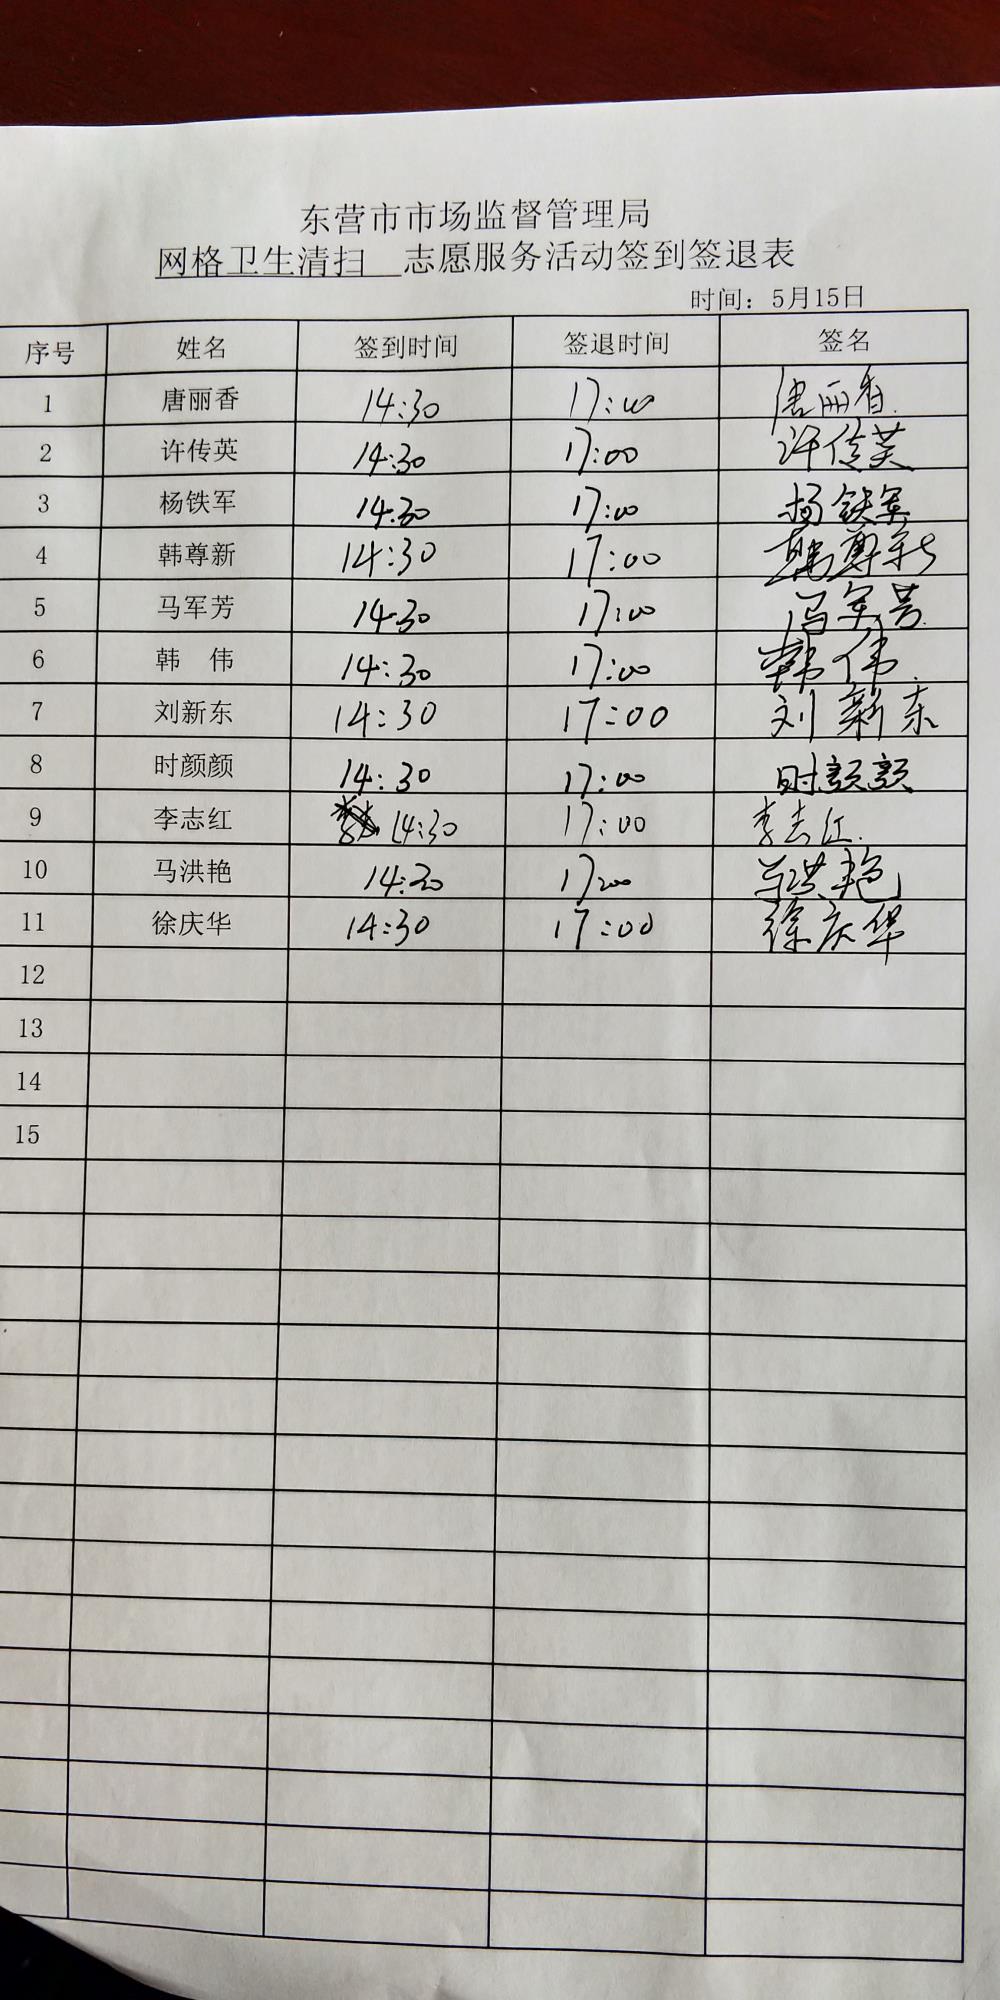 东营市市场监督管理局
网格卫生清扫 志愿服务活动签到签退表
时间：5月15日
序号 姓名 签到时间 签退时间 签名
1 唐丽香 14:30 17:00 唐丽香
2 许传英 14:30 17:00 许传英
3 杨铁军 14:30 17:00 杨铁军
4 韩尊新 14:30 17:00 韩尊新
5 马军芳 14:30 17:00 马军芳
6 韩 伟 14:30 17:00 韩伟
7 刘新东 14:30 17:00 刘新东
8 时颜颜 14:30 17:00 时颜颜
9 李志红 14:30 17:00 李志红
10 马洪艳 14:30 17:00 马洪艳
11 徐庆华 14:30 17:00 徐庆华
12
13
14
15